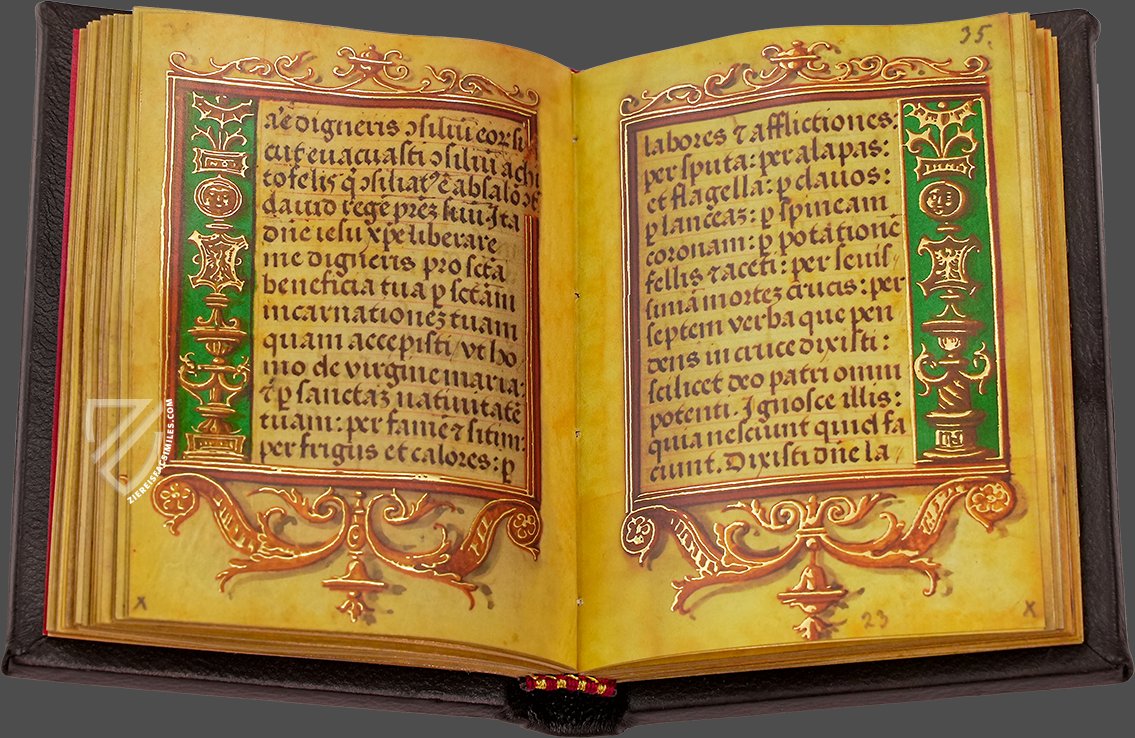 are digneris ↄsiliū eoꝝ si
cut euacuasti ↄsiliū achi
tofelis q̇ ↄsiliat᷒ ē absalō ↄͣ
dauid regē prez suū. Ita
dn̄e iesu xp̄e liberare
me digneris pro scā
beneficia tua ꝑ sctām
incarnationez tuam
quam accepisti, vt ho
mo de virgine maria:
⁊ ꝑ sanctaz natiuitatē
tuam: per famē ⁊ sitim:
per frigus et calores: ꝑ
35.
labores ⁊ afflictiones:
per sputa: per alapas:
et flagella: ꝑ clauos:
ꝑ lanceaz: ꝑ spineam
coronam: ꝑ potationē
fellis ⁊ aceti: per seuis
simā mortez crucis: per
septem verba que pen
dens in cruce dixisti:
scilicet deo patri omni
potenti. Ignosce illis:
quia nesciunt quid fa
ciunt. Dixisti dn̄e la
x
23
x
ZIEREISFACSIMILES.COM